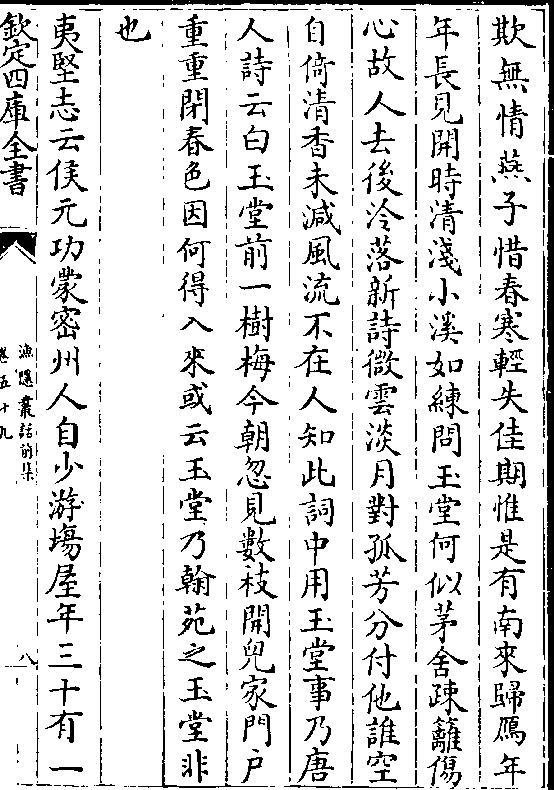 欺無情燕子惜春寒輕失佳期惟是有南來歸鴈年
年長見開時清淺小溪如練問玉堂何似茅舍疎籬傷
心故人去後冷落新詩微雲淡月對孤芳分付他誰空
自倚清香未減風流不在人知此詞中用玉堂事乃唐
人詩云白玉堂前一樹梅今朝忽見數枝開兒家門户
重重閉春色因何得入來或云玉堂乃翰苑之玉堂非
也
夷堅志云侯元功蒙密州人自少游塲屋年三十有一
欽定四庫全書
漁隱叢話前集
卷五十九
八